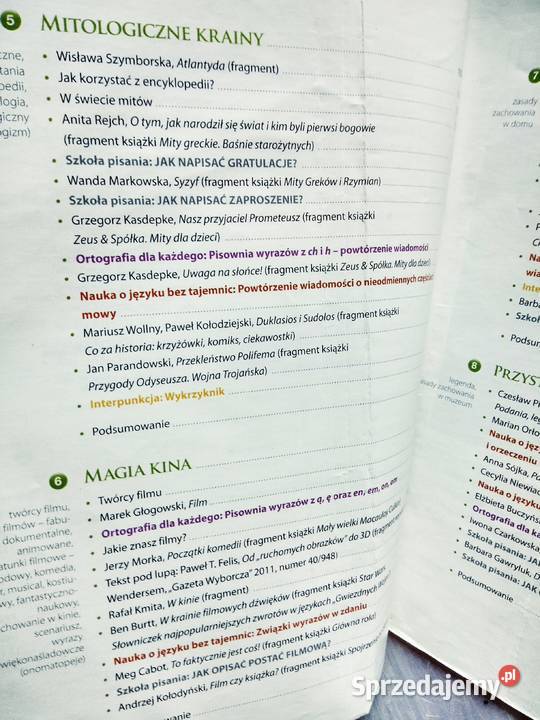 5 MITOLOGICZNE KRAINY
• Wisława Szymborska, Atlantyda (fragment)
• Jak korzystać z encyklopedii?
• W świecie mitów
• Anita Rejch, O tym, jak narodził się świat i kim byli pierwsi bogowie
(fragment książki Mity greckie. Baśnie starożytnych)
• Szkoła pisania: JAK NAPISAĆ GRATULACJE?
• Wanda Markowska, Syzyf (fragment książki Mity Greków i Rzymian)
• Szkoła pisania: JAK NAPISAĆ ZAPROSZENIE?
• Grzegorz Kasdepke, Nasz przyjaciel Prometeusz (fragment książki
Zeus & Spółka. Mity dla dzieci)
• Ortografia dla każdego: Pisownia wyrazów z ch i h – powtórzenie wiadomości
• Grzegorz Kasdepke, Uwaga na słońce! (fragment książki Zeus & Spółka. Mity dla dzieci)
• Nauka o języku bez tajemnic: Powtórzenie wiadomości o nieodmiennych częściach
mowy
• Mariusz Wollny, Paweł Kołodziejski, Duklasios i Sudolos (fragment książki
Co za historia: krzyżówki, komiks, ciekawostki)
• Jan Parandowski, Przekleństwo Polifema (fragment książki
Przygody Odyseusza. Wojna Trojańska)
• Interpunkcja: Wykrzyknik
• Podsumowanie
6 MAGIA KINA
twórcy filmu,
filmów – fabu-
dokumentalne,
animowane,
gatunki filmowe –
komedia,
musical, kostiu-
fantastyczno-
naukowy,
zachowanie w kinie,
scenariusz,
wyrazy
dźwiękonaśladowcze
(onomatopeje)
• Twórcy filmu
• Marek Głogowski, Film
• Ortografia dla każdego: Pisownia wyrazów z ą, ę oraz en, em, on, om
• Jakie znasz filmy?
• Jerzy Morka, Początki komedii (fragment książki Mały wielki
• Tekst pod lupą: Paweł T. Felis, Od „ruchomych obrazków” do 3D (fragment
Wendersem, „Gazeta Wyborcza” 2011, numer 40/948)
• Rafał Kmita, W kinie (fragment)
• Ben Burtt, W krainie filmowych dźwięków (fragment książki Star Wars.
Słowniczek najpopularniejszych zwrotów w językach „Gwiezdnych
• Nauka o języku bez tajemnic: Związki wyrazów w zdaniu
• Meg Cabot, To faktycznie jest coś! (fragment książki Główna rola)
• Szkoła pisania: JAK OPISAĆ POSTAĆ FILMOWĄ?
• Andrzej Kołodyński, Film czy książka? (fragment książki
7
zasady
zachowania
w domu
Podsum
8 PRZYST
legenda,
zasady zachowania
w muzeum
• Czesław
Podania, leg
• Marian Orło
• Nauka o języ
i orzeczeniu
• Anna Sójka, Po
• Cecylia Niewia
• Nauka o języku
• Elżbieta Buczyńs
• Ortografia dla ka
• Iwona Czarkowska,
• Szkoła pisania: JAK
• Barbara Gawryluk,
• Szkoła pisania: JAK
• Podsumowanie
Sprzedajemy.pl